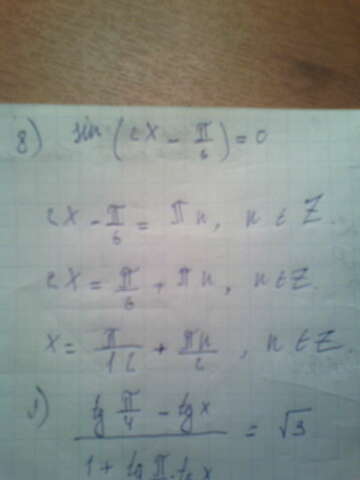 8) sin(2x - π/6) = 0
2x - π/6 = πn, n ∈ Z.
2x = π/6 + πn, n ∈ Z.
x = π/12 + πn/2, n ∈ Z.
1) (tg π/4 - tg x)/(1 + tg π/4 · tg x) = √3